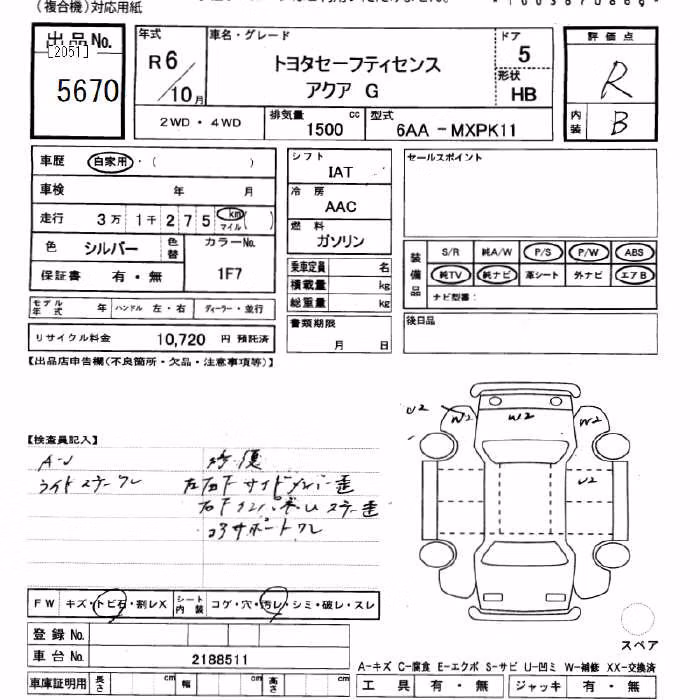 (複合機)対応用紙
出品No.
[2051]
5670
年式
R6
10月
車名・グレード
トヨタセーフティセンス
アクア G
ドア
5
形状
HB
評価点
R
内装
B
2WD・4WD
排気量
1500 cc
型式
6AA -MXPK11
車歴 自家用・( )
車検 年 月
走行 3万 1千 275 km マイル ( )
色 シルバー 色替
カラーNo.
1F7
保証書 有・無
モデル年式 年 ハンドル 左・右 ディーラー・並行
リサイクル料金 10,720 円 預託済
シフト
IAT
冷房
AAC
燃料
ガソリン
乗車定員 名
積載量 kg
総重量 kg
書類期限
月 日
セールスポイント
装備品
S/R 純A/W P/S P/W ABS
純TV 純ナビ 革シート 外ナビ エアB
ナビ型番:
後日品
【出品店申告欄(不良箇所・欠品・注意事項等)】
U2 W2 W2 W2
U2
【検査員記入】
A-J 修復
ライトステーワレ
コアサポートワレ
FW キズ・トビ石・割レX
シート内装 コゲ・穴・汚レ・シミ・破レ・スレ
登録No.
車台No. 2188511
車庫証明用 長さ cm 幅 cm 高さ cm
スペア
A-キズ C-腐食 E-エクボ S-サビ U-凹ミ W-補修 XX-交換済
工具 有・無 ジャッキ 有・無